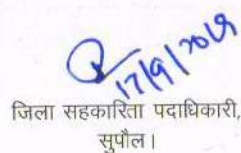 17/9/2019
जिला सहकारिता पदाधिकारी,
सुपौल।